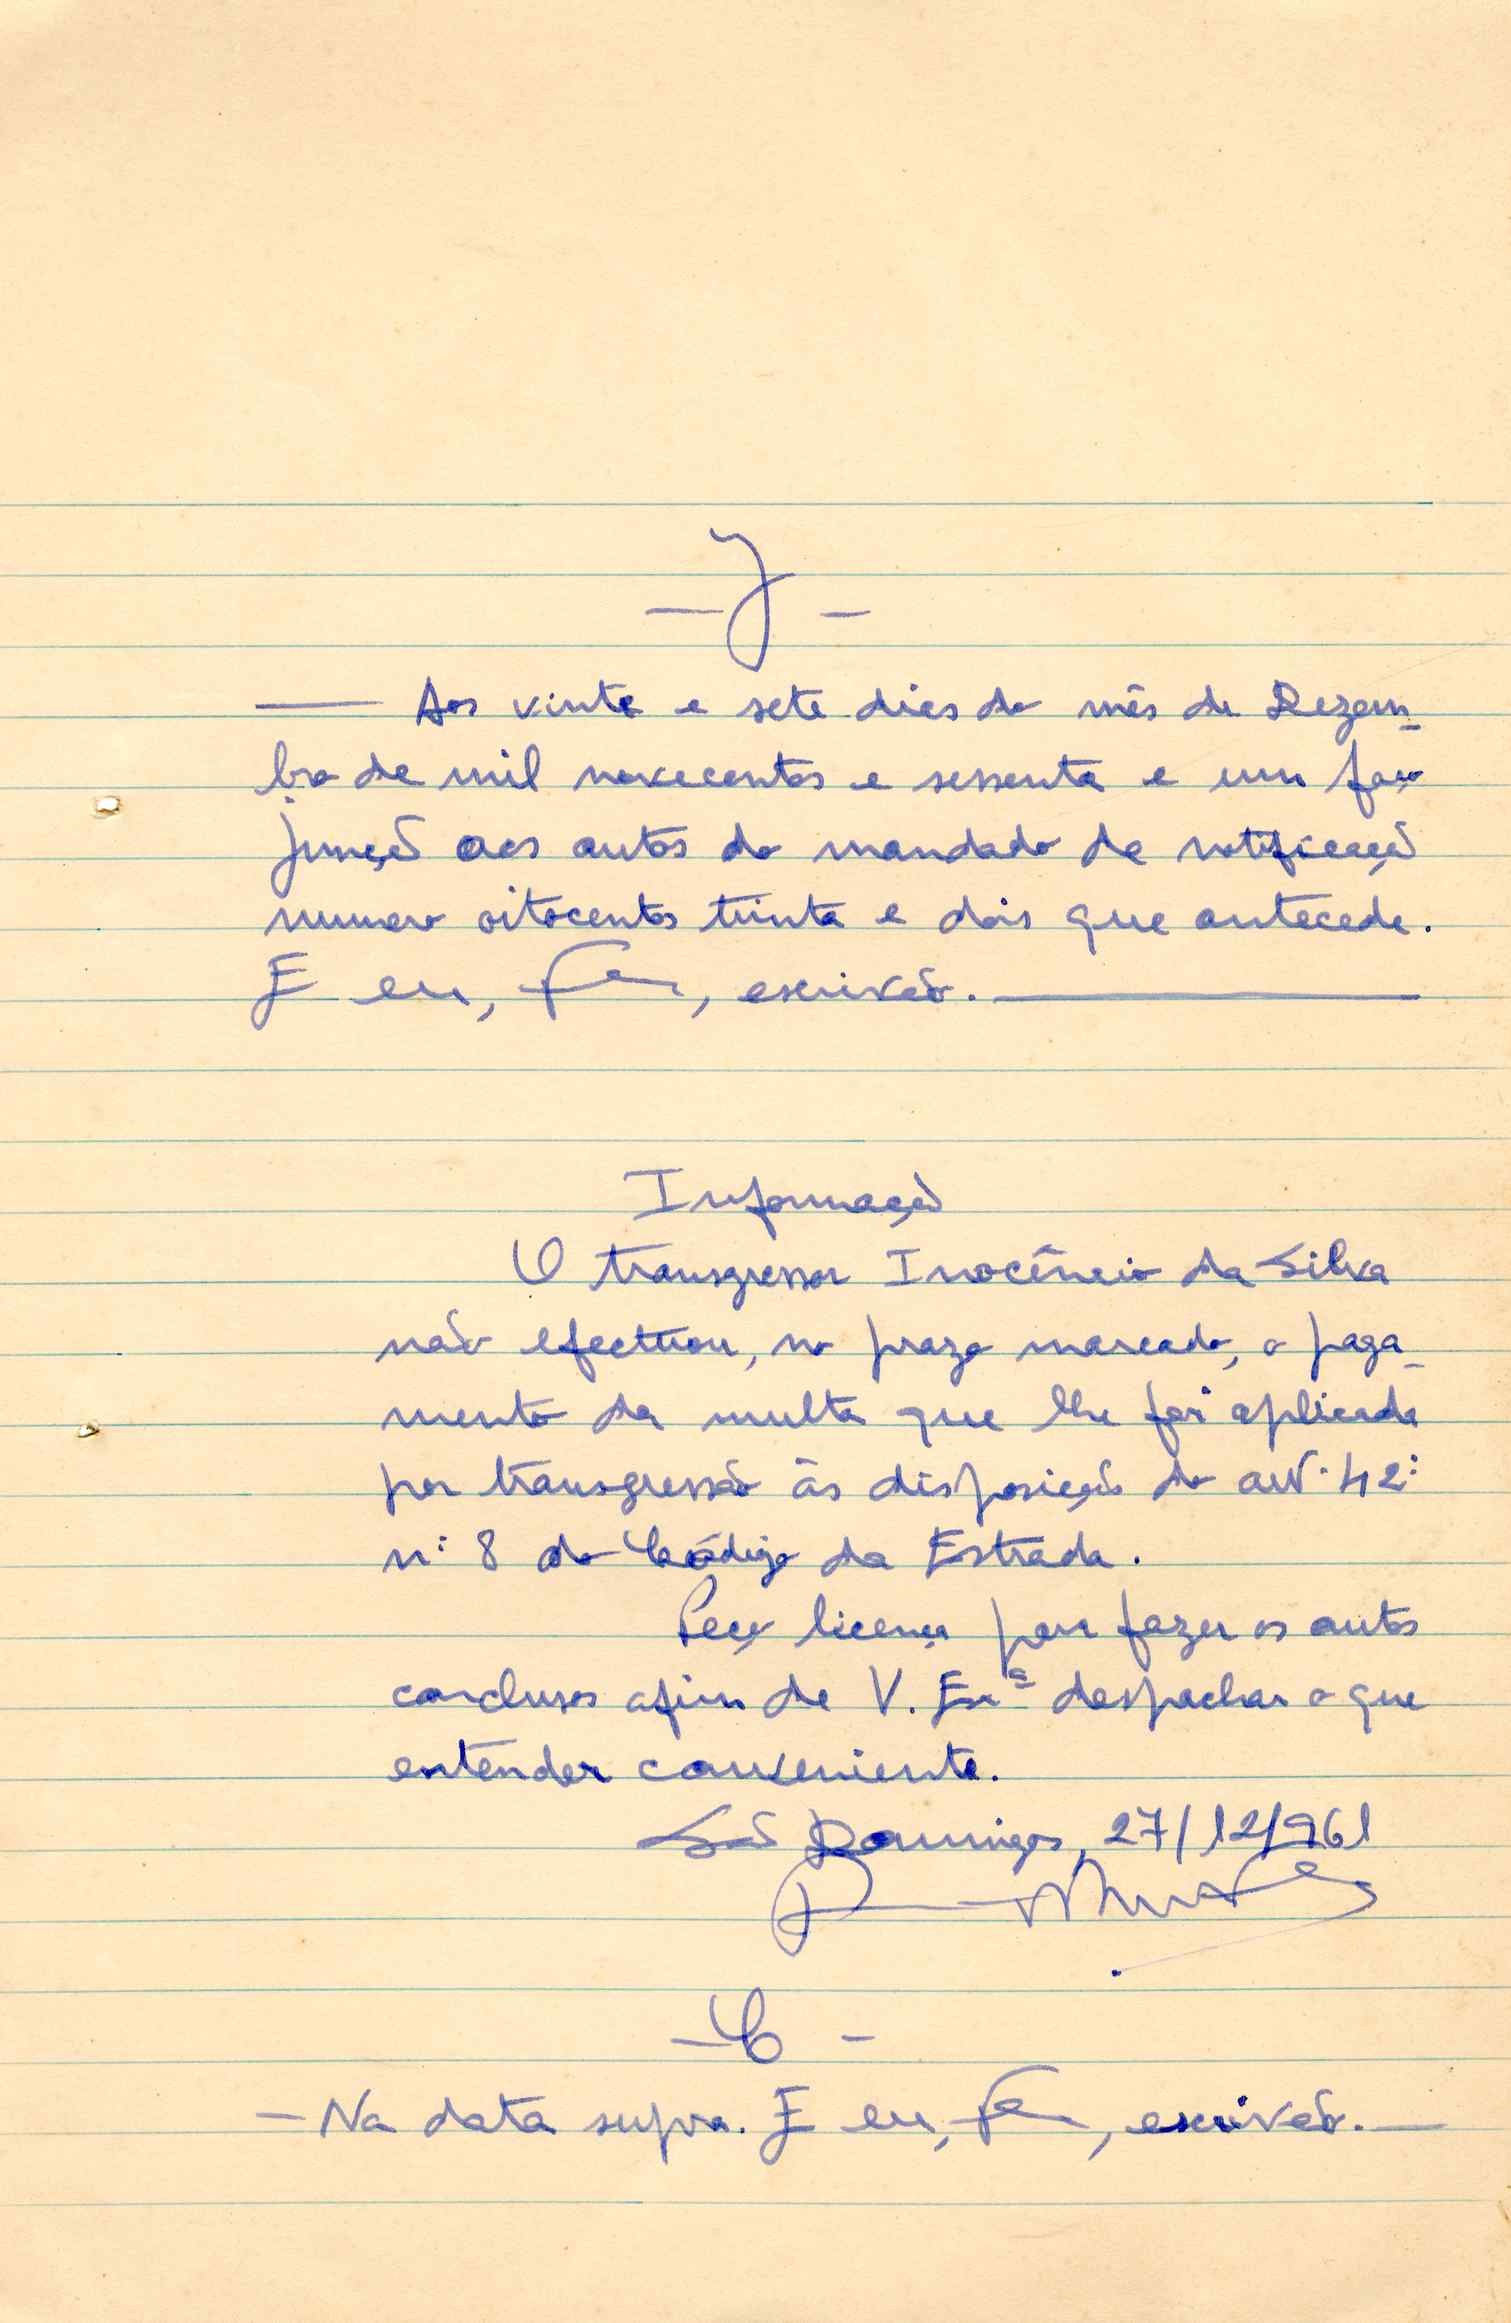 — J —
— Aos vinte e sete dias do mês de Dezem-
bro de mil novecentos e sessenta e um faço
junção aos autos do mandado de notificação
numero oitocentos trinta e dois que antecede.
E eu, , escrivão. —
Informação
O transgressor Inocêncio da Silva
não efectuou, no prazo marcado, o paga-
mento da multa que lhe foi aplicada
por transgressão às disposição do art. 42º
nº 8 do Código da Estrada.
Peço licença para fazer os autos
conclusos afim de V. Exª despachar o que
entender conveniente.
São Domingos, 27/12/961
— C —
— Na data supra. E eu, , escrivão. —